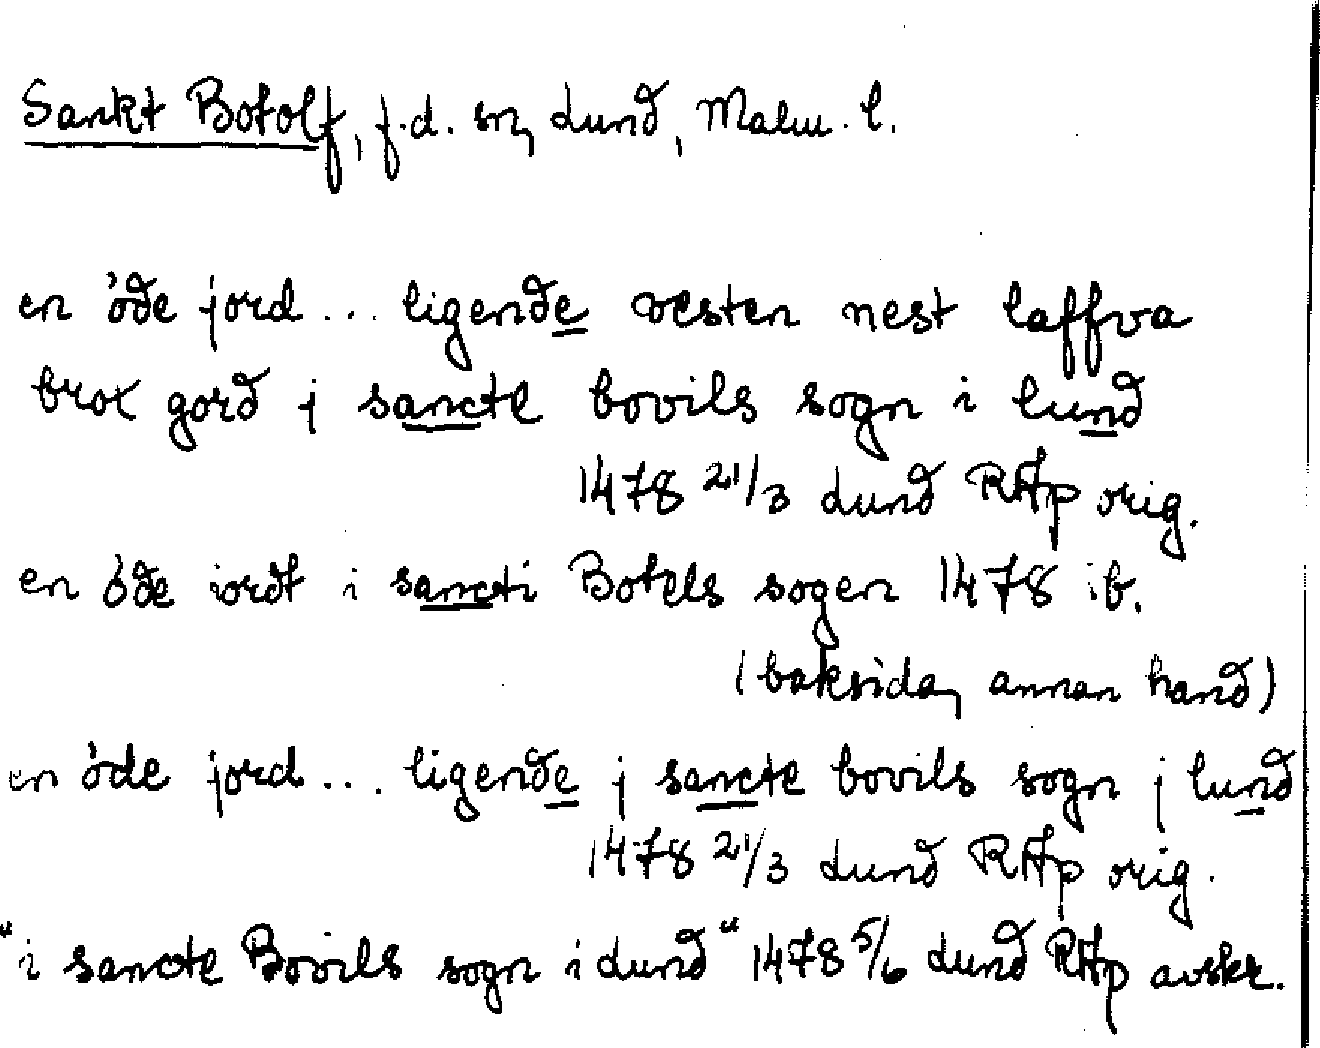 Sankt Botolf, f.d. sn, Lund, Malm. l.
en öde jord ... ligende vesten nest laffva
brox gord j sancte bovils sogn i lund
1478 21/3 Lund RAp orig.
en öde iordt i sancti Botels sogen 1478 ib.
(baksida, annan hand)
en öde jord ... ligende j sancte bovils sogn j lund
1478 21/3 Lund RAp orig.
"i sancte Bovils sogn i Lund" 1478 5/6 Lund RAp avskr.